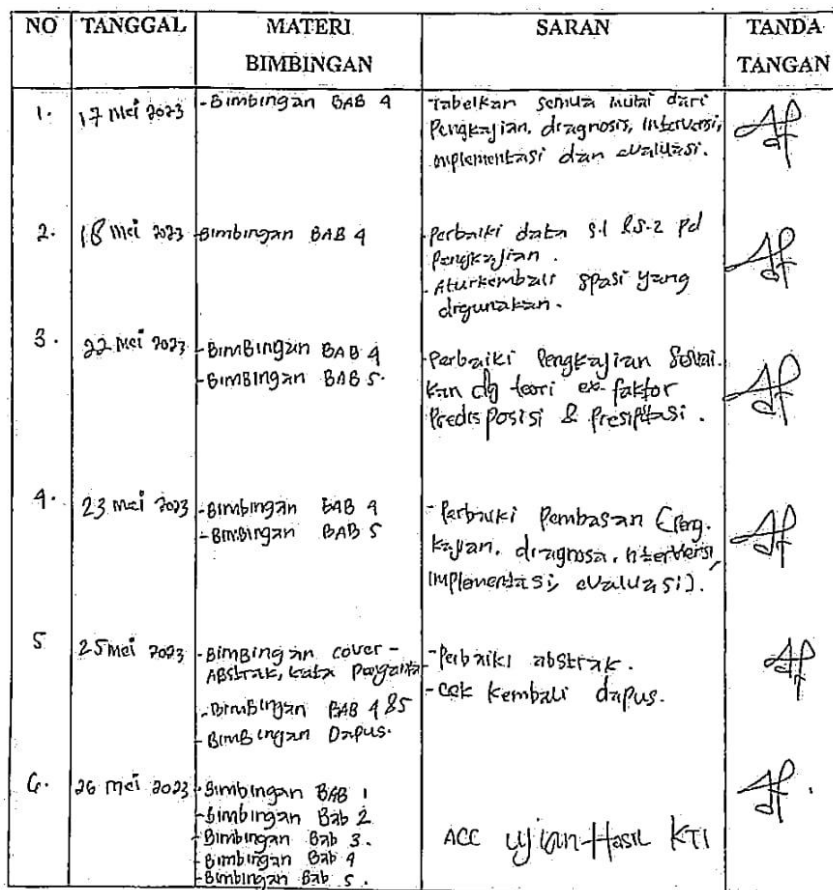 NO TANGGAL MATERI BIMBINGAN SARAN TANDA TANGAN
1. 17 Mei 2023 -Bimbingan BAB 4 Tabelkan semua mulai dari
Pengkajian, diagnosis, intervensi,
implementasi dan evaluasi.
2. 18 Mei 2023 -Bimbingan BAB 4 -Perbaiki data S-1 & S-2 pd
Pengkajian.
-Aturkembali spasi yang
digunakan.
3. 22 Mei 2023 -Bimbingan BAB 4
-Bimbingan BAB 5.
-Perbaiki Pengkajian Sesuai-
kan dg teori ex faktor
Predisposisi & Presipitasi.
4. 23 Mei 2023 -Bimbingan BAB 4
-Bimbingan BAB 5
-Perbaiki Pembasan (Peng-
kajian, diagnosa, intervensi,
implementasi, evaluasi).
5 25 Mei 2023 -Bimbingan cover -
Abstrak, kata Pengantar
-Bimbingan BAB 4 &5
-Bimbingan Dapus.
-Perbaiki abstrak.
-cek kembali dapus.
6. 26 Mei 2023 -Bimbingan BAB 1
-Bimbingan Bab 2
-Bimbingan Bab 3.
-Bimbingan Bab 4
-Bimbingan Bab 5.
ACC ujian Hasil KTI